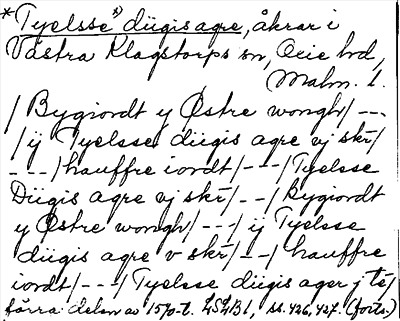 *Tyelsse x) diigis agre, åkrar i
Västra Klagstorps sn, Oxie hd,
Malm. l.
/ Bygiordt y Østre wongh/---
/ij Tyelsse diigis agre vj skr/
---/hauffre iordt/---/Tyelsse
Diigis agre vj skr/--/Bygiordt
y Østre wongh/---/ij Tyelsse
diigis agre v skr/--/hauffre
iordt/---/Tyelsse diigis ager j te/
förra delen av 1570-t. LSLB1, ss. 426, 427. (forts.)